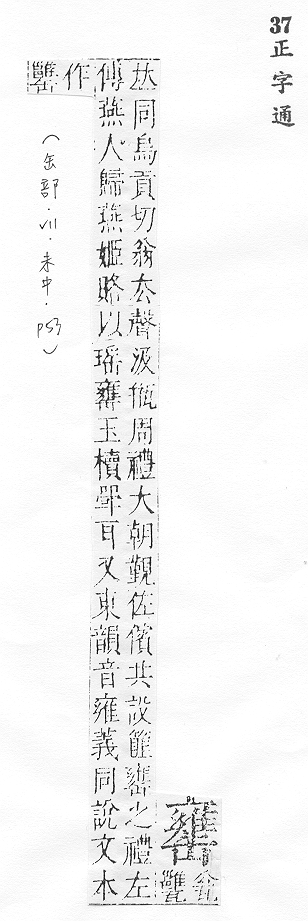 37正字通
罋
瓮
甕
𠀤同烏貢切翁去聲汲缾周禮大朝覲佐儐共設篚罋之禮左
傳燕人歸燕姬賂以瑤罋玉櫝斝耳又東韻音雍義同說文本
作
(缶部.VII.未中.P53)